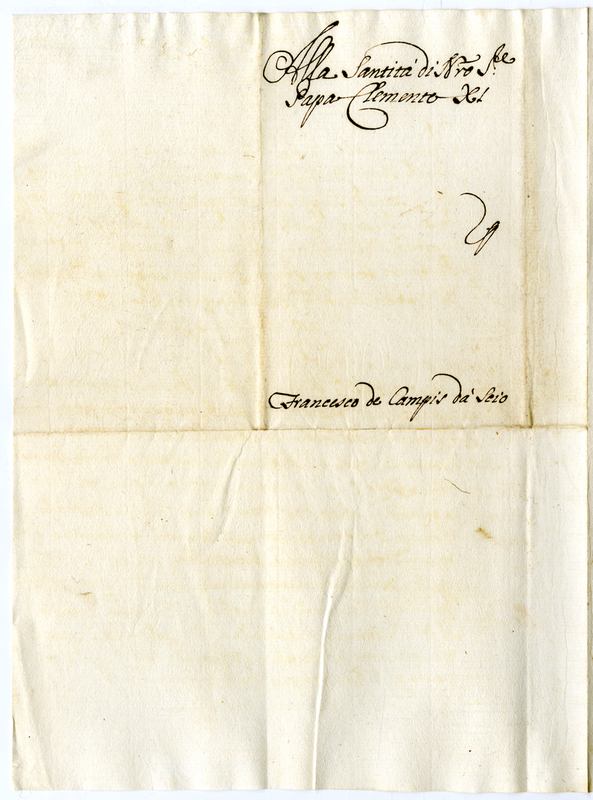 Alla Santità di Nro Sre
Papa Clemente XI
Francesco de Campis dà Scio